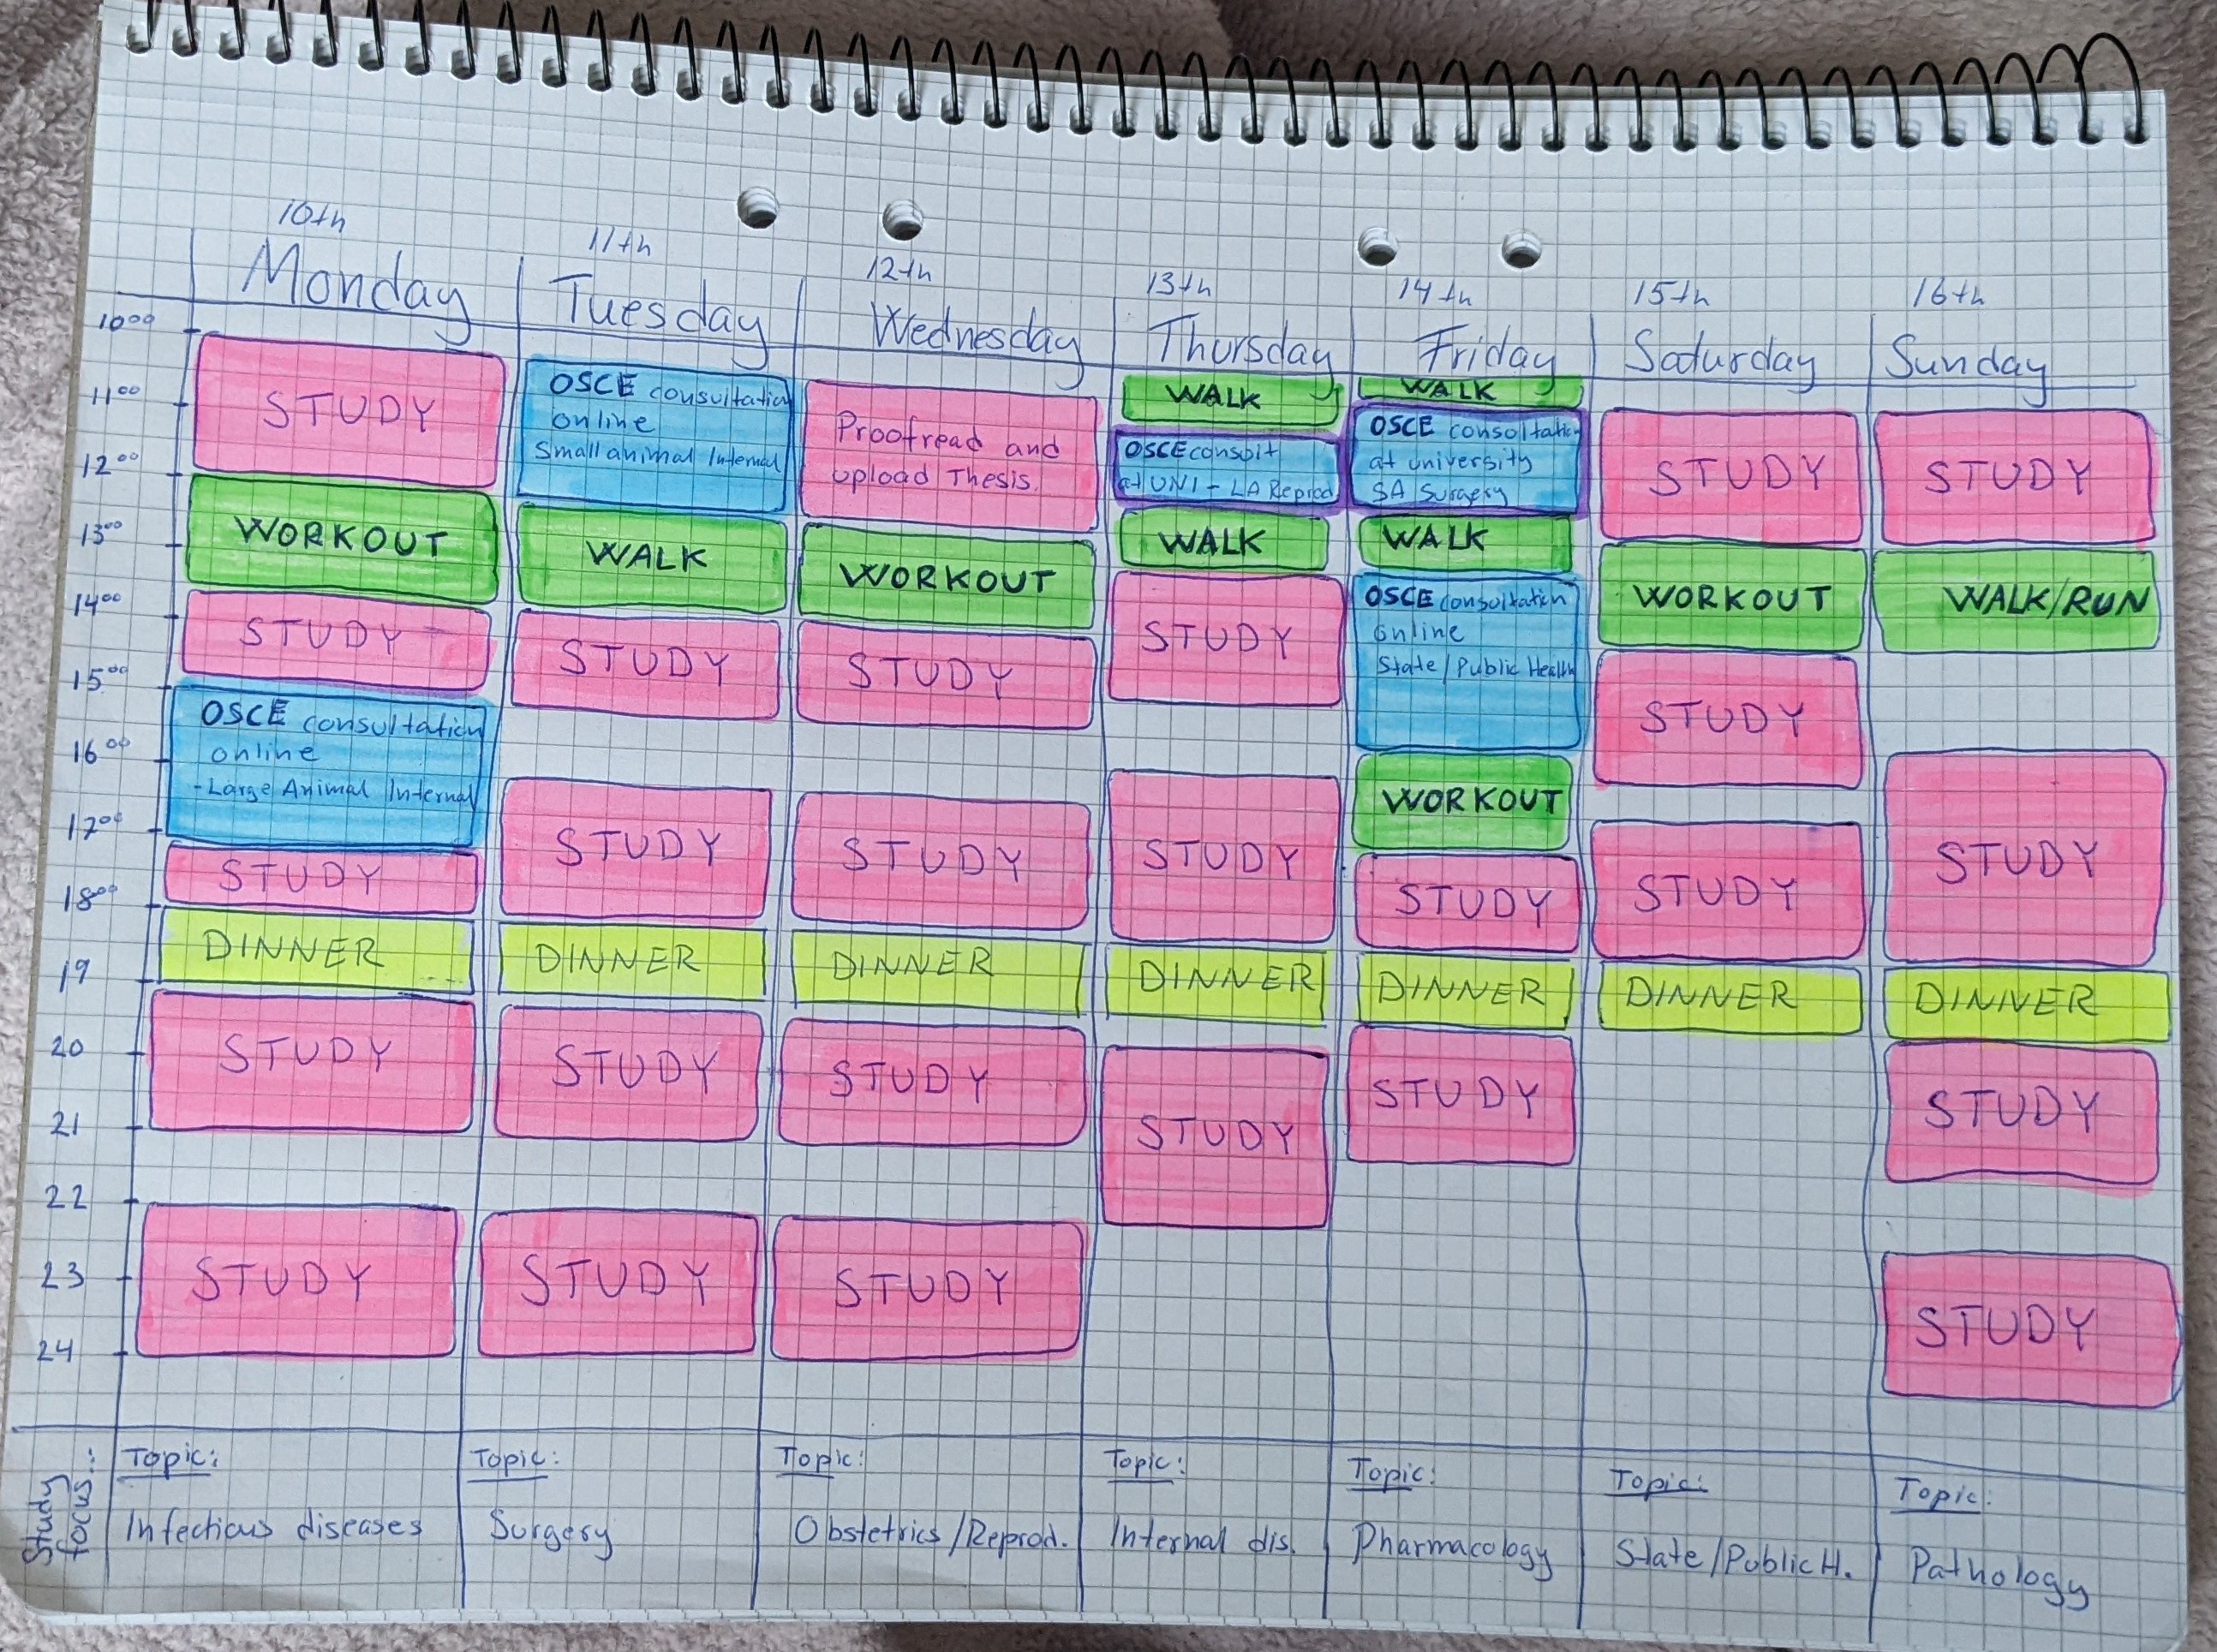 10th
11th
12th
13th
14th
15th
16th
Monday
Tuesday
Wednesday
Thursday
Friday
Saturday
Sunday
10⁰⁰
11⁰⁰
12⁰⁰
13⁰⁰
14⁰⁰
15⁰⁰
16⁰⁰
17⁰⁰
18⁰⁰
19
20
21
22
23
24
STUDY
WORKOUT
STUDY
OSCE consultation
online
- Large Animal Internal
STUDY
DINNER
STUDY
STUDY
OSCE consultation
online
Small animal Internal
WALK
STUDY
STUDY
DINNER
STUDY
STUDY
Proofread and
upload Thesis.
WORKOUT
STUDY
STUDY
DINNER
STUDY
STUDY
WALK
OSCE consult
at UNI - LA Reprod
WALK
STUDY
STUDY
DINNER
STUDY
WALK
OSCE consoltation
at university
SA Surgery
WALK
OSCE consultation
online
State/Public Health
WORKOUT
STUDY
DINNER
STUDY
STUDY
WORKOUT
STUDY
STUDY
DINNER
STUDY
WALK/RUN
STUDY
DINNER
STUDY
STUDY
Study
focus:
Topic:
Infectious diseases
Topic:
Surgery
Topic:
Obstetrics/Reprod.
Topic:
Internal dis.
Topic:
Pharmacology
Topic:
State/Public H.
Topic:
Pathology